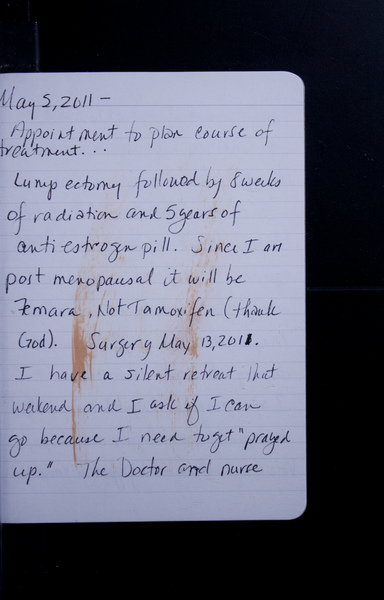 May 5, 2011 –
Appointment to plan course of
treatment...
Lumpectomy followed by 8 weeks
of radiation and 5 years of
anti estrogen pill. Since I am
post menopausal it will be
Femara, Not Tamoxifen (thank
God). Surgery May 13, 2011.
I have a silent retreat that
weekend and I ask if I can
go because I need to get "prayed
up." The Doctor and nurse